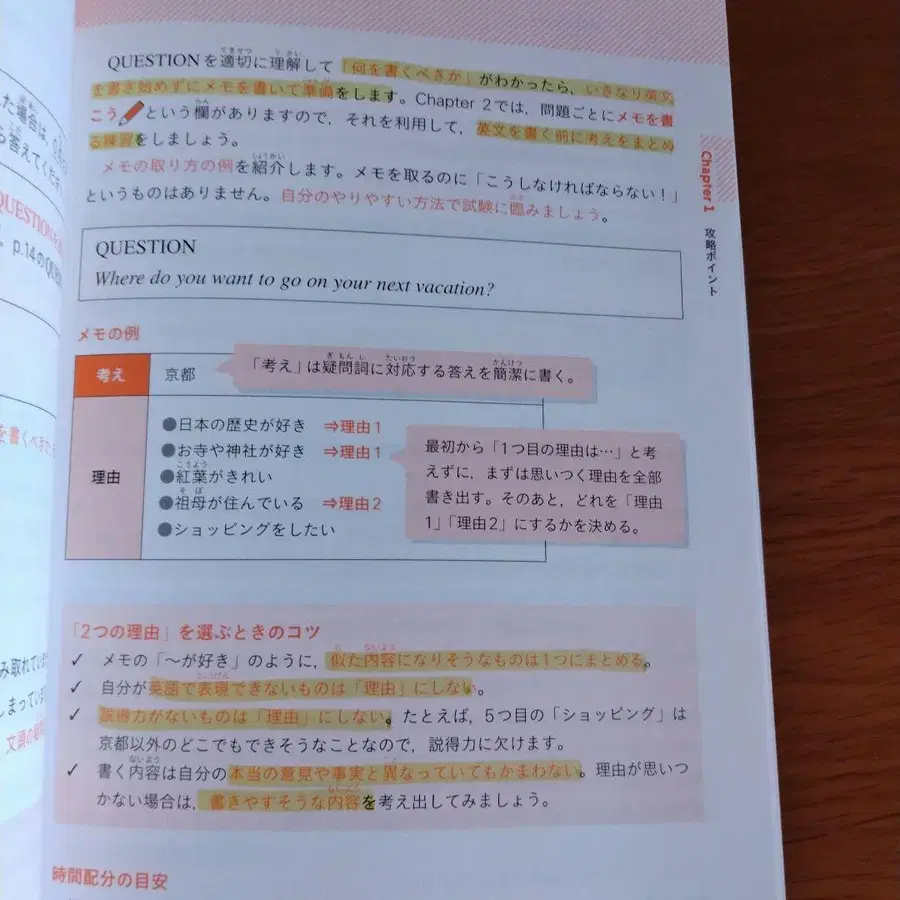 QUESTIONを適切に理解して「何を書くべきか」がわかったら，いきなり英文
を書き始めずにメモを書いて準備をします。Chapter 2では，問題ごとにメモを書
こうという欄がありますので，それを利用して，英文を書く前に考えをまとめ
る練習をしましょう。
メモの取り方の例を紹介します。メモを取るのに「こうしなければならない！」
というものはありません。自分のやりやすい方法で試験に臨みましょう。
QUESTION
Where do you want to go on your next vacation?
メモの例
考え 京都
「考え」は疑問詞に対応する答えを簡潔に書く。
理由
●日本の歴史が好き ⇒理由1
●お寺や神社が好き ⇒理由1
●紅葉がきれい
●祖母が住んでいる ⇒理由2
●ショッピングをしたい
最初から「1つ目の理由は…」と考
えずに，まずは思いつく理由を全部
書き出す。そのあと，どれを「理由
1」「理由2」にするかを決める。
「2つの理由」を選ぶときのコツ
✓ メモの「～が好き」のように，似た内容になりそうなものは1つにまとめる。
✓ 自分が英語で表現できないものは「理由」にしない。
✓ 説得力がないものは「理由」にしない。たとえば，5つ目の「ショッピング」は
京都以外のどこでもできそうなことなので，説得力に欠けます。
✓ 書く内容は自分の本当の意見や事実と異なっていてもかまわない。理由が思いつ
かない場合は，書きやすそうな内容を考え出してみましょう。
時間配分の目安
Chapter 1 攻略ポイント
た場合は，
ら答えてくださ
QUESTION
p.14のQUE
を書くべきか
み取れていま
しまっていま
文頭の